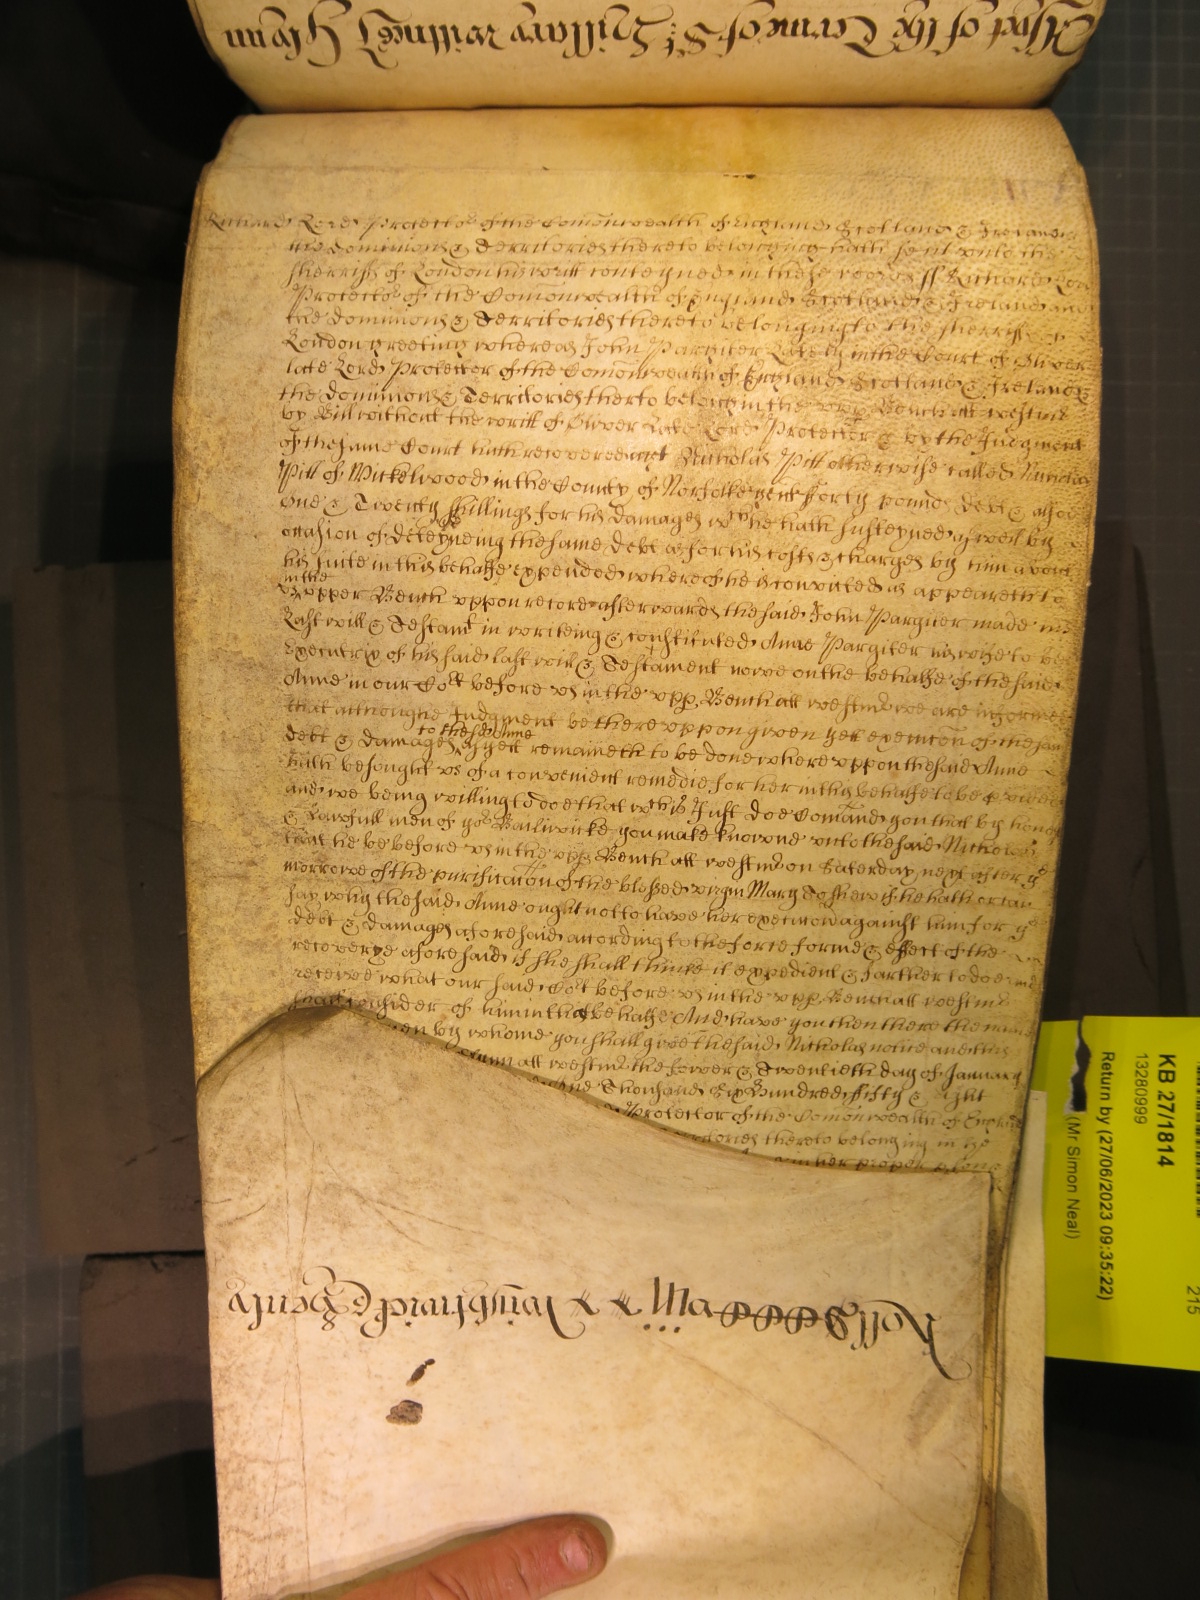 Yet of the Terme of St Hillary willmed Glynn
Richard Lord Protector of the Comonwealth of England Scotland & Ireland and
the dominions & Territories thereto belonging hath sent unto the
sherriffs of London his writt conteyned in these words ss Richard Lord
Protector of the Comonwealth of England Scotland & Ireland and
the dominions & Territories thereto belonging to the sherriffs of
London greeting whereas John Pargiter Lately in the Court of Oliver
late Lord Protector of the Comonwealth of England Scotland & Ireland &
the dominions & Territories therto belong in the upp Bench att westmr
by Bill without the writt of Oliver Late Lord Protector & by the Judgment
of the same Court hath recovered agt Nicholas Pitt otherwise called Nicholas
Pitt of Mickelwood in the County of Norfolke gent fforty pounds debt & alsoe
one & Twenty shillings for his damages wch he hath susteyned aswell by
occasion of deteyneing the same debt as for his costs & charges by him about
his suite in this behalfe expended whereof he is convicted as appeareth to
us in the
upper Bench uppon record afterwards the said John Pargiter made his
Last will & Testamt in writeing & constituted Anne Pargiter his wife to be
Executrix of his said last will & Testament nowe on the behalfe of the said
Anne in our Cort before us in the upp Bench att westmr we are informed
that although Judgment be thereuppon given yet execucon of the said
debt & damages to the sd Anne as yett remaineth to be done whereuppon the said Anne
hath besought us of a convenient remedie for her in this behalfe to be pvided
and we being willing to doe that wch is Just doe Comand you that by honest
& Lawfull men of yor Bailiwicke you make knowne unto the said Nicholas
that he be before us in the upp Bench att westmr on Saturday next after ye
morrowe of the purificacon of the blessed virgin Mary To shew if he hath or can
say why the said Anne ought not to have her execucon against him for ye
debt & damages aforesaid according to the force forme & effect of the
recoverye aforesaid if she shall thinke it expedient & farther to doe and
receive what our said Cort before us in the upp Bench att westmr
shall consider of him in that behalfe And have you then there the names
en by whome you shall give the said Nicholas notice and this
Glynn att westmr the fower & Twentieth day of January
one Thousand Six Hundred ffifty & eight
Protector of the Comonwealth of England
ritories thereto belonging in upp
in her proper psone
Roll viij Lughtwich & Henly
KB 27/1814
13280999
Return by (27/06/2023 09:35:22)
(Mr Simon Neal)
215